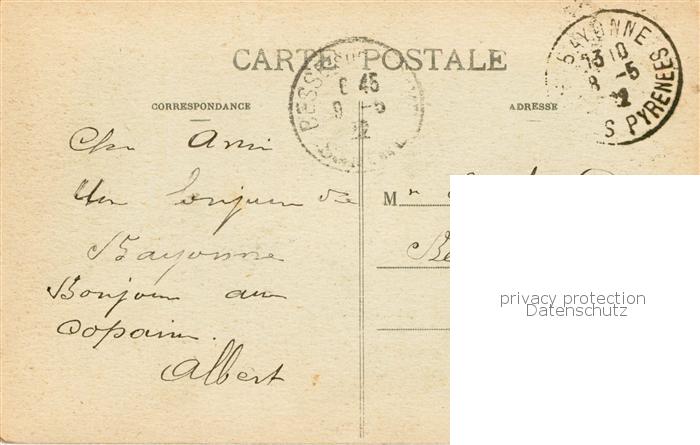 CARTE POSTALE
CORRESPONDANCE
ADRESSE
BAYONNE
13 10
8 -5
22
S PYRENEES
BESS
6 45
9 -5
22
Cher Ami
Un bonjour de
Bayonne
Bonjour au
Copain.
Albert
M
privacy protection
Datenschutz